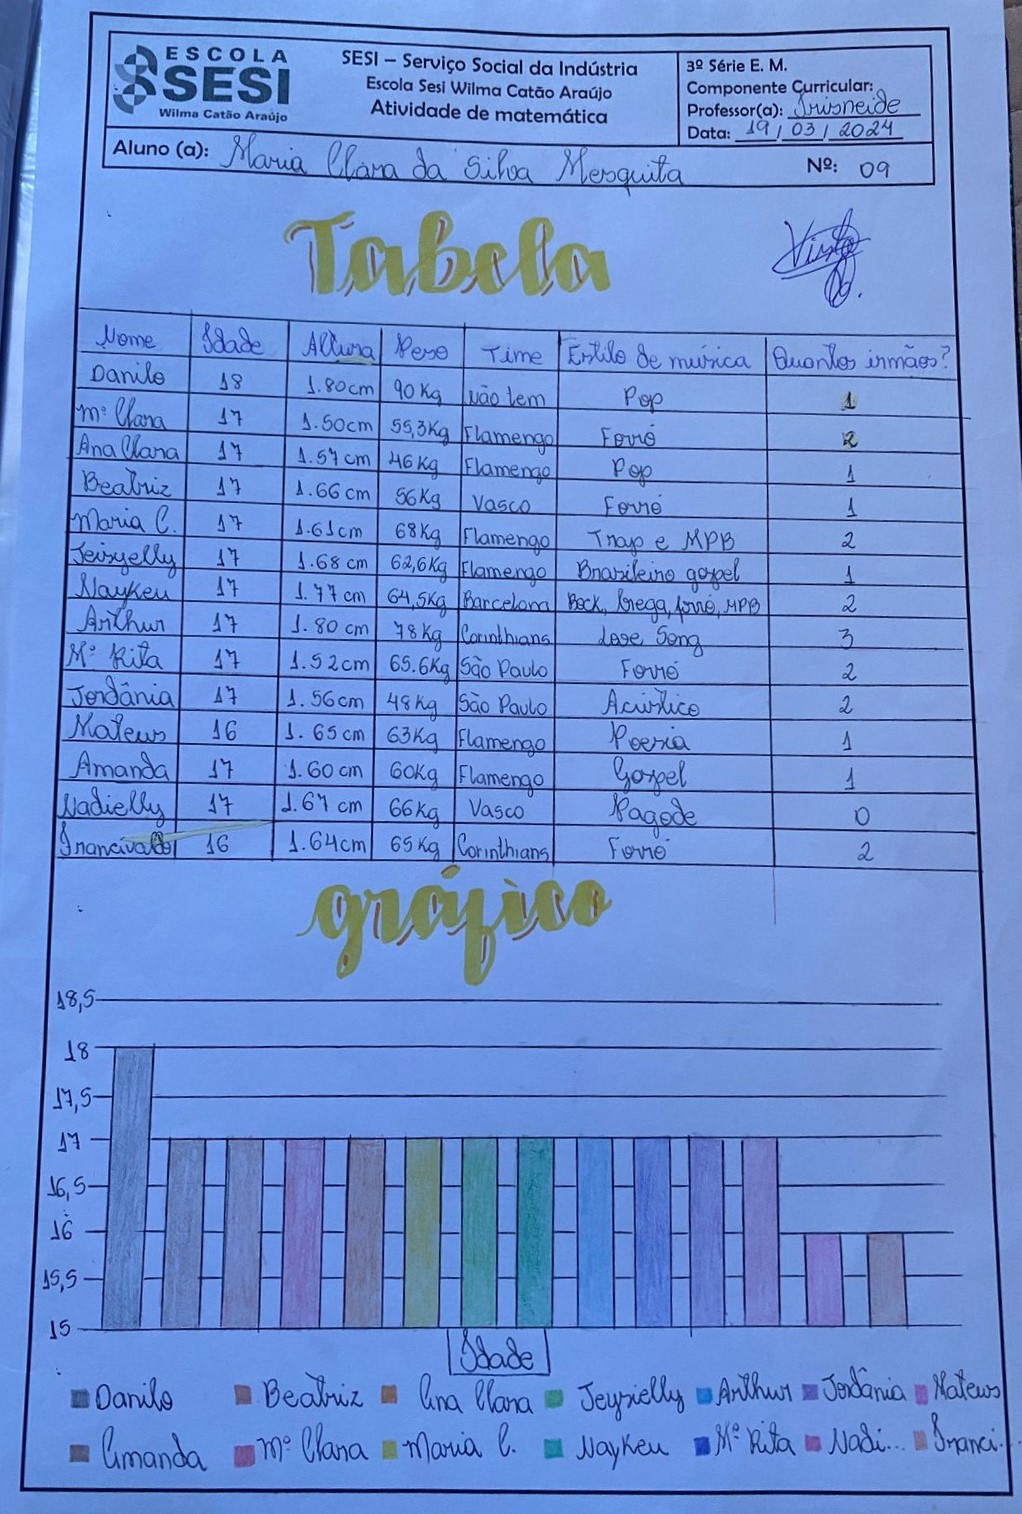 ESCOLA
SESI
Wilma Catão Araújo
SESI – Serviço Social da Indústria
Escola Sesi Wilma Catão Araújo
Atividade de matemática
3ª Série E. M.
Componente Curricular:
Professor(a): Irisneide
Data: 19/03/2024
Aluno (a): Maria Clara da Silva Mesquita Nº: 09
Tabela
Visto
Nome Idade Altura Peso Time Estilo de música Quantos irmãos?
Danilo 18 1.80cm 90Kg Não tem Pop 1
Mª Clara 17 1.50cm 55,3Kg Flamengo Forró 2
Ana Clara 17 1.57cm 46Kg Flamengo Pop 1
Beatriz 17 1.66cm 56Kg Vasco Forró 1
Maria C. 17 1.61cm 68Kg Flamengo Trap e MPB 2
Jeisyelly 17 1.68cm 62,6Kg Flamengo Brasileiro gospel 1
Naykeu 17 1.77cm 64,5Kg Barcelona Rock, brega, forró, MPB 2
Arthur 17 1.80cm 78Kg Corinthians Love Song 3
Mª Rita 17 1.52cm 65.6Kg São Paulo Forró 2
Jordânia 17 1.56cm 48Kg São Paulo Acústico 2
Mateus 16 1.65cm 63Kg Flamengo Poesia 1
Amanda 17 1.60cm 60Kg Flamengo Gospel 1
Nadielly 17 1.67cm 66Kg Vasco Pagode 0
Francivaldo 16 1.64cm 65Kg Corinthians Forró 2
gráfico
18,5
18
17,5
17
16,5
16
15,5
15
Idade
Danilo Beatriz Ana Clara Jeyzielly Arthur Jordânia Mateus
Amanda Mª Clara Maria C. Naykeu Mª Rita Nadi... Franci...